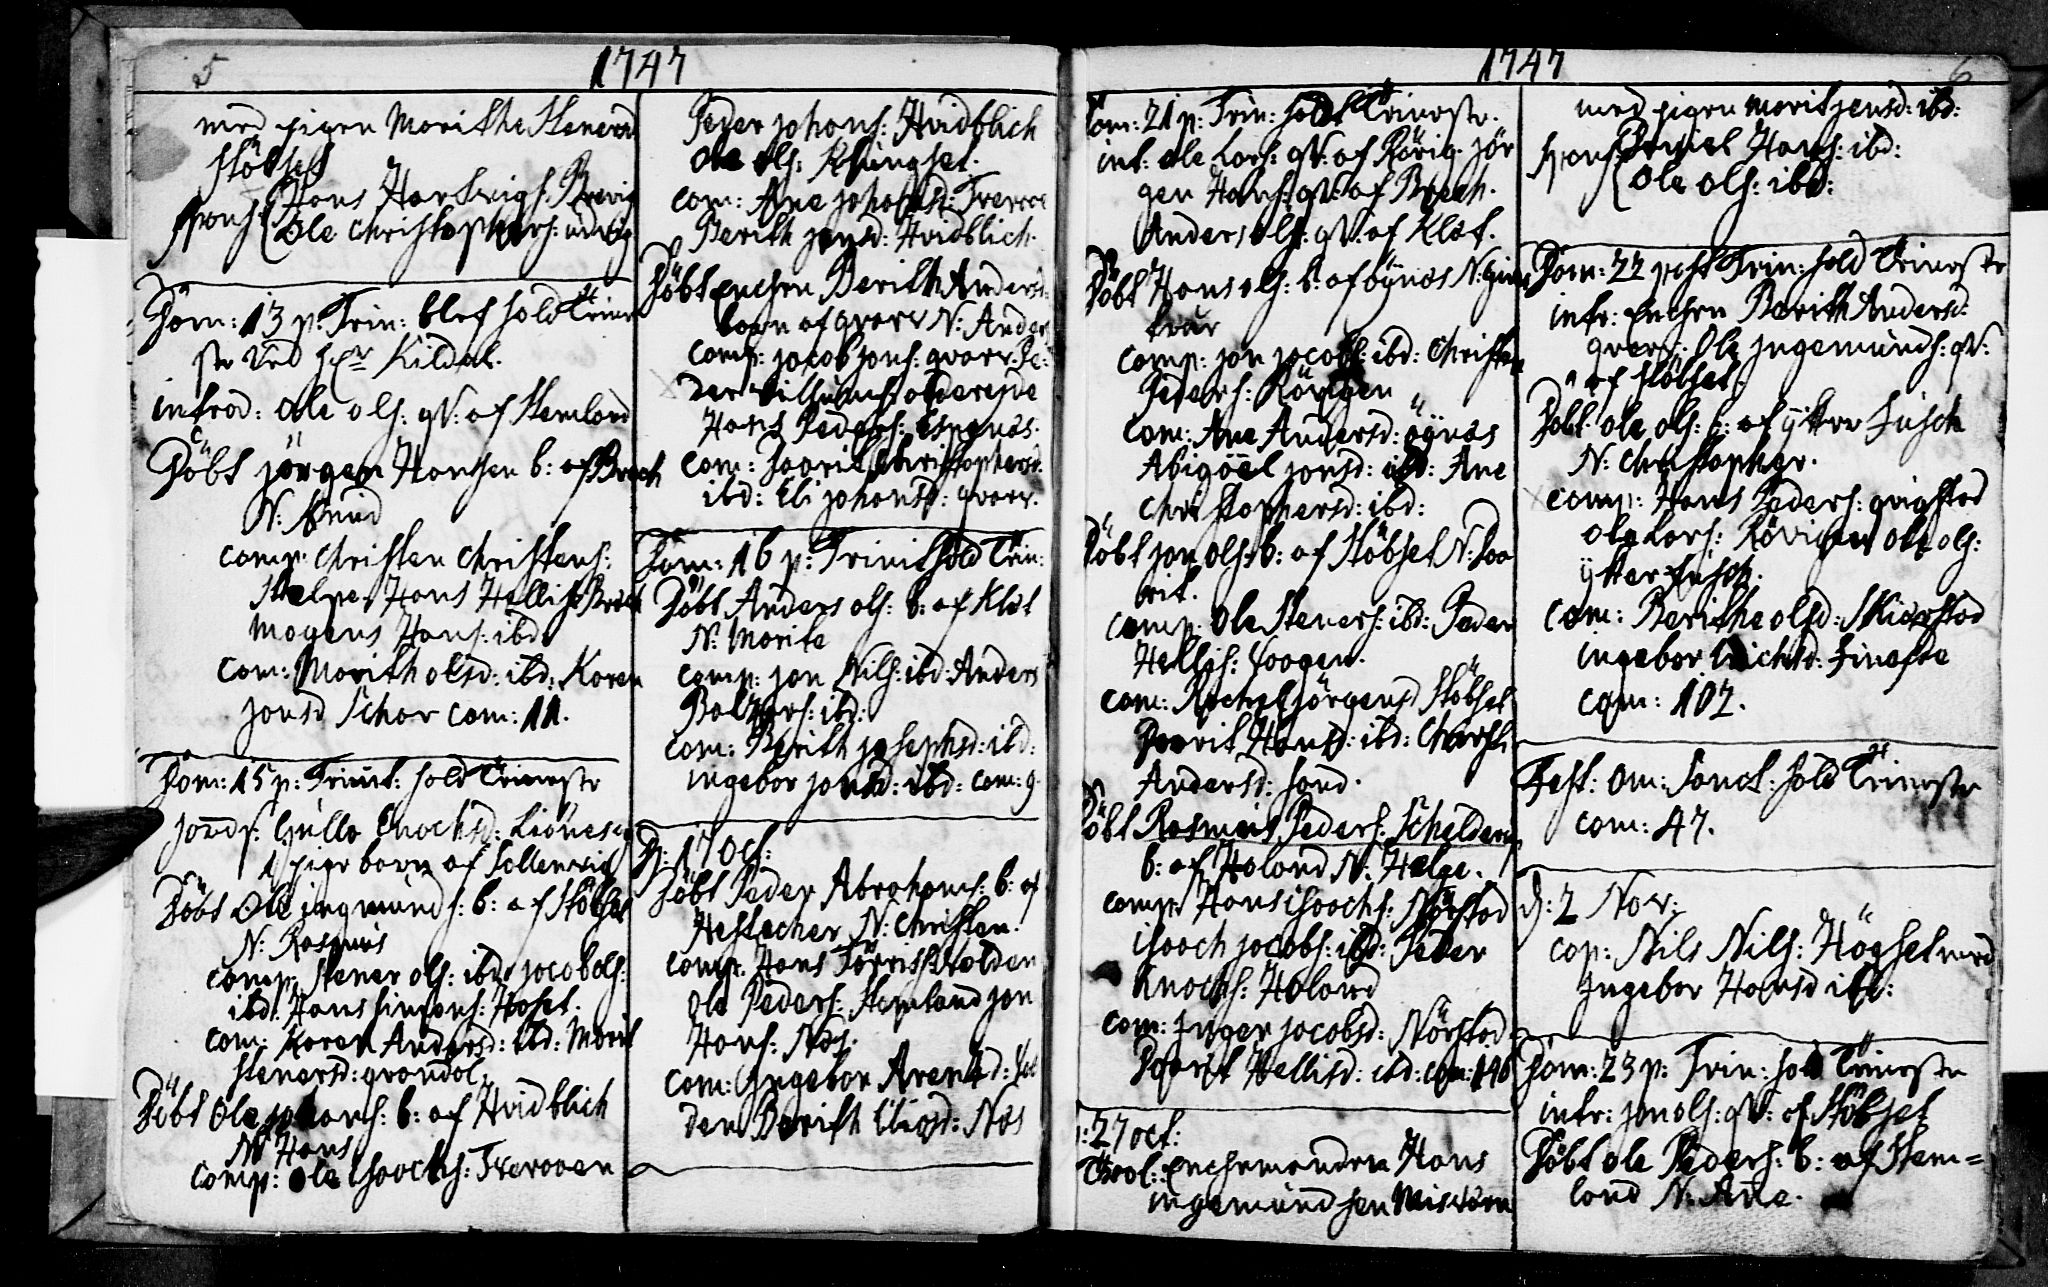 5
1747
med pigen Morithe Stenersd
Stöbset
spons: Hans Hartvigs: Brevig
Ole Christophers: udvig
Dom: 13 p: Trin: blef hold
ste ved Hr Kildal.
introd: Ole Ols: qv: af Hemland
Döbt Jörgen Hansen b: af Brech
N: Knud
comp: Christen Christens:
Hans Hellis: Brech
Mogens Hans: ibd:
com: Morith Olsd: ibd: Karen
Jonsd Schar com: 11.
Dom: 15 p: Trinit: hold
jords: Gulló Enochsd:
1 pige barn af Sollenvig
Döbt Ole ingmunds: b: af Stöbset
N: Rasmus
comp: Stener Ols: ibd: Jacob Ols:
ibd: Hans Simons: Hoset.
com: Karen Andersd: ibd: Morit
Stenersd: grandal
Döbt Ole Johans: b: af Hvidblich
N: Hans
comp: Ole Isaachs: Tveraaen
Peder Johans: Hvidblich
Ole Ols: Klungset.
com: Ane Johansd: Tveraae
Berith Jensd: Hvidblich.
Döbt Enchen Berith Andersd:
barn af qvarv N: Anders
comp: Jacob Jons: qvarv. Pe:
der Vilhelms: olderejde
Hans Peders: Esp:näs.
com: Zaarit Christophersd:
ibd: Eli Johansd: qvarv.
Dom: 16 p: Trinit hold
Döbt Anders Ols: b: af Klöt
N: Morite
comp: Jon Nils: ibd: Anders
Baltzers: ibd:
com: Berith Josephsd: ibd:
Ingebor Jonsd: ibd: com: 9.
D: 17 Oct:
Döbt Peder Abrahams: b: af
Hestacher N: Christen.
comp: Hans Törris:
Ole Peders: Hemland Jon
Hans: Näs.
com: Ingebor Arentsd:
den Berith Eliasd: Näs
1747
6
Dom: 21 p: Trin: hold
int: Ole Lars: qv: af Rövig. Jör
gen Hans: qv: af Brech.
Anders Ols: qv: af Klöt.
Döbt Hans Ols: b: af öynäs N:
comp: Jon Jacobs: ibd: Christen
Peders: Rövigen
com: Ane Andersd: öynäs
Abigaël Jonsd: ibd: Ane
Christophersd: ibd:
Döbt Jon Ols: b: af Stöbset N: Zaa
rit.
comp: Ole Steners: ibd: Peder
Hellis: Vaagen.
com: Rachel Jörgensd Stöbset
Zaarit Hansd: ibd:
Andersd: Sand.
Döbt Rasmus Peders: Schelderup
b: af Höland N: Helge.
comp: Hans Isaachs: Nörstad
Isaach Jacobs: ibd: Peder
Knochs: Höland
com: Inger Jacobsd: Nörstad
Zaarit Hellisd: ibd: com: 146
: 27 oct:
Enchemanden Hans
ingemundsen Misvären
med pigen Morit Jensd: ibd:
spons: Daniel Hans: ibd:
Ole Ols: ibd:
Dom: 22 post Trin: hold
intr: Enchen Berith Andersd:
qvarv: Ole Ingemunds: qv:
af Stöbset.
Döbt Ole Ols: b: af ytter
N: Christopher.
comp: Hans Peders: qvigstad
Ole Lars: Rövigen Ole Ols:
ytter
com: Berithe Olsd: Skiärstad
Ingebor
com: 102.
Fest: Om: Sanct: hold
com: 47.
D: 2 Nov:
cop: Nils Nils: Högset med
Ingebor Hansd ibd:
Dom: 23 p: Trin: hold
intr: Jon Ols: qv: af Stöbset
Döbt Ole Peders: b: af Hem=
land N: Ane.